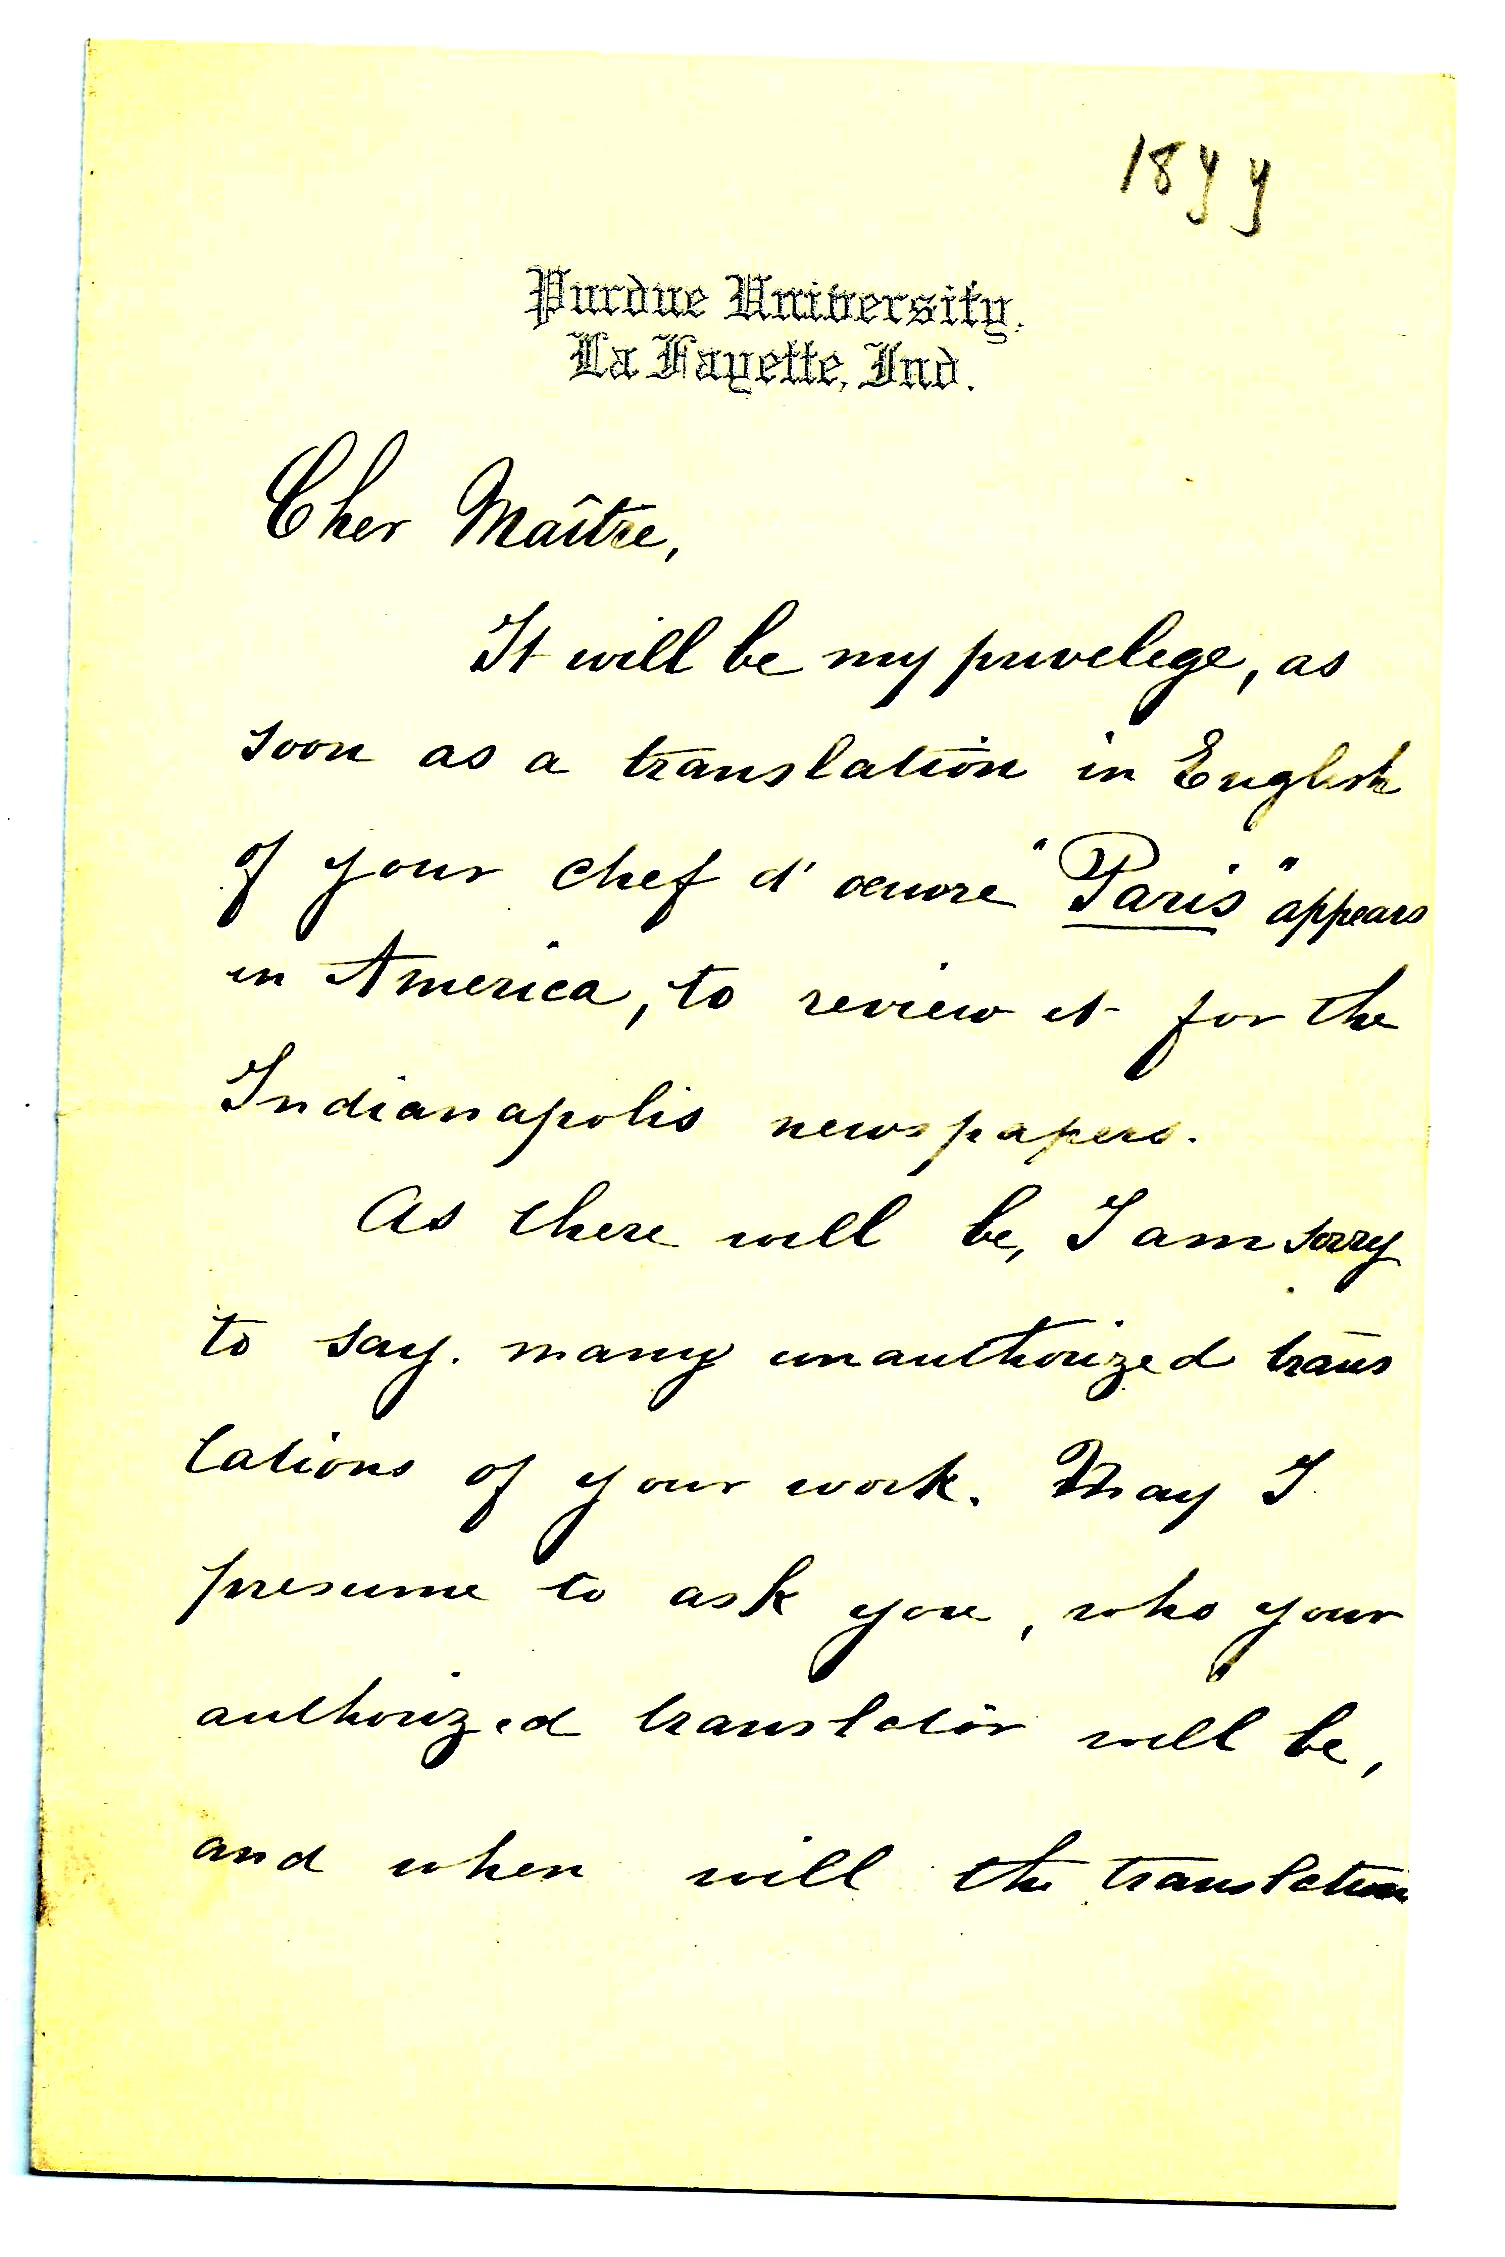 1899
Purdue University,
La Fayette, Ind.
Cher Maître,
It will be my privelege, as
soon as a translation in English
of your chef d' oeuvre "Paris" appears
in America, to review it for the
Indianapolis newspapers.
As there will be, I am sorry
to say. many unauthorized trans
lations of your work. May I
presume to ask you, who your
authorized translator will be,
and when will the translation